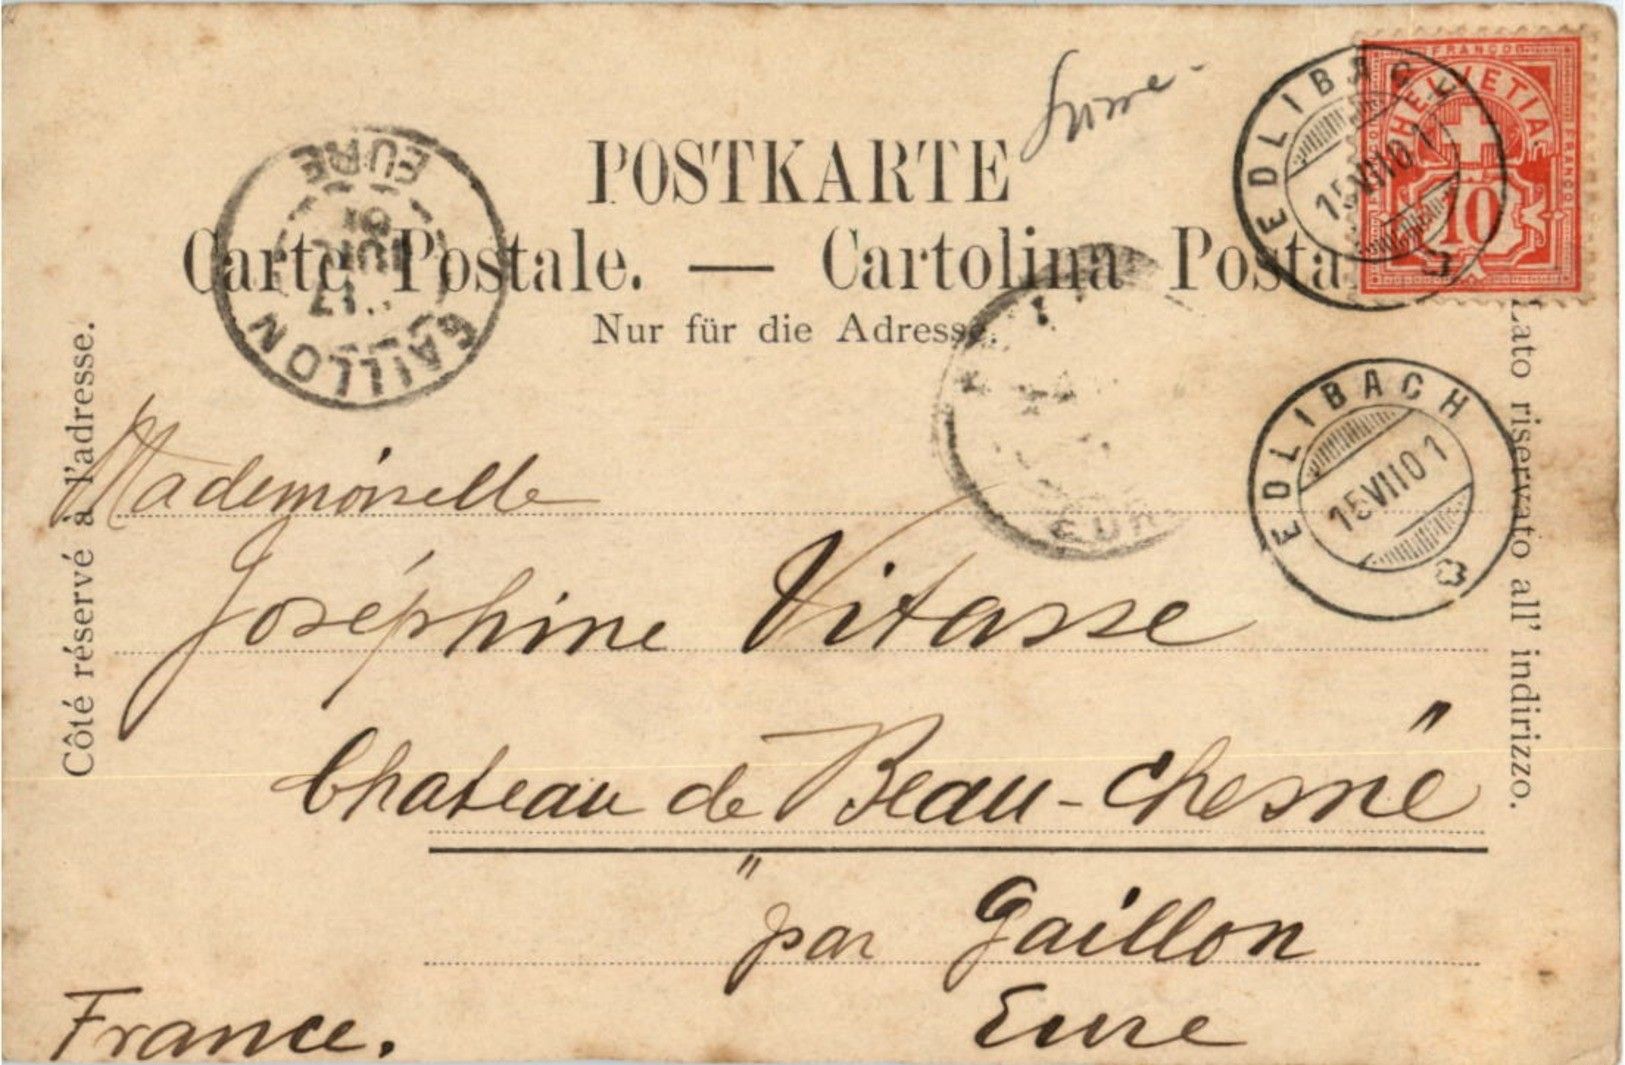 Suisse
POSTKARTE
Carte Postale. — Cartolina Posta
Nur für die Adresse.
Côté réservé à l'adresse.
Lato riservato all' indirizzo.
FRANCO
HELVETIA
10
EDLIBACH
15 VII 01
EDLIBACH
15 VII 01
GAILLON
17
JUIL
01
EURE
EUR
Mademoiselle
Joséphine Vitasse
Chateau de "Beau-chesne"
par Gaillon
Eure
France.